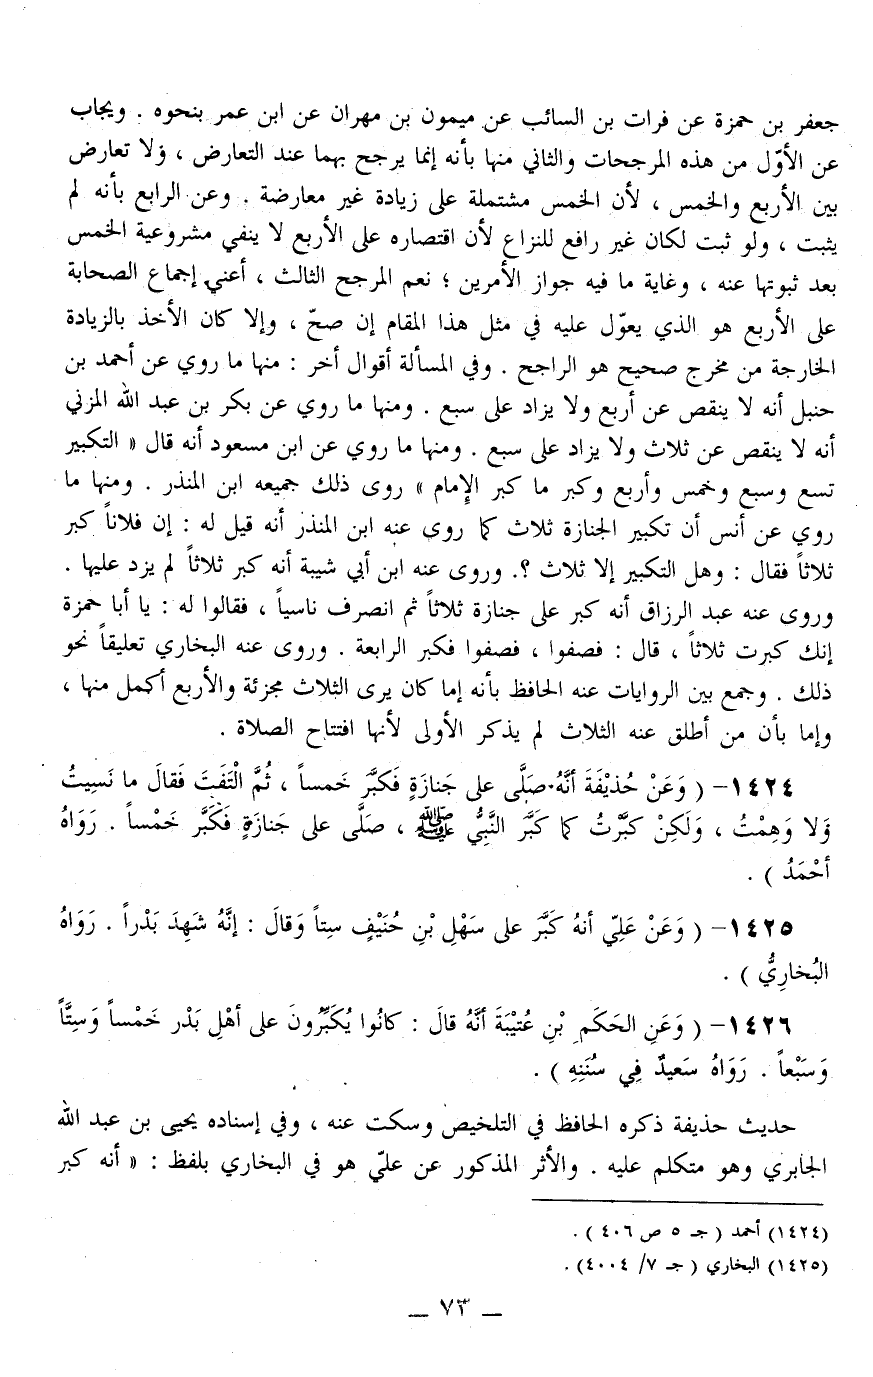 جعفر بن حمزة عن فرات بن السائب عن ميمون بن مهران عن ابن عمر بنحوه . ويجاب
عن الأوّل من هذه المرجحات والثاني منها بأنه إنما يرجح بهما عند التعارض ، ولا تعارض
بين الأربع والخمس ، لأن الخمس مشتملة على زيادة غير معارضة . وعن الرابع بأنه لم
يثبت ، ولو ثبت لكان غير رافع للنزاع لأن اقتصاره على الأربع لا ينفي مشروعية الخمس
بعد ثبوتها عنه ، وغاية ما فيه جواز الأمرين ؛ نعم المرجح الثالث ، أعني إجماع الصحابة
على الأربع هو الذي يعوّل عليه في مثل هذا المقام إن صحّ ، وإلا كان الأخذ بالزيادة
الخارجة من مخرج صحيح هو الراجح . وفي المسألة أقوال أخر : منها ما روي عن أحمد بن
حنبل أنه لا ينقص عن أربع ولا يزاد على سبع . ومنها ما روي عن بكر بن عبد الله المزني
أنه لا ينقص عن ثلاث ولا يزاد على سبع . ومنها ما روي عن ابن مسعود أنه قال « التكبير
تسع وسبع وخمس وأربع وكبر ما كبر الإمام » روى ذلك جميعه ابن المنذر . ومنها ما
روي عن أنس أن تكبير الجنازة ثلاث كما روى عنه ابن المنذر أنه قيل له : إن فلاناً كبر
ثلاثاً فقال : وهل التكبير إلا ثلاث ؟. وروى عنه ابن أبي شيبة أنه كبر ثلاثاً لم يزد عليها .
وروى عنه عبد الرزاق أنه كبر على جنازة ثلاثاً ثم انصرف ناسياً ، فقالوا له : يا أبا حمزة
إنك كبرت ثلاثاً ، قال : فصفوا ، فصفوا فكبر الرابعة . وروى عنه البخاري تعليقاً نحو
ذلك . وجمع بين الروايات عنه الحافظ بأنه إما كان يرى الثلاث مجزئة والأربع أكمل منها ،
وإما بأن من أطلق عنه الثلاث لم يذكر الأولى لأنها افتتاح الصلاة .
١٤٢٤- ( وَعَنْ حُذَيْفَةَ أَنَّهُ صَلَّى على جَنازَةٍ فَكَبَّرَ خَمساً ، ثُمَّ الْتَفَتَ فَقالَ ما نَسِيتُ
وَلا وَهِمْتُ ، وَلَكِنْ كبَّرْتُ كما كَبَّرَ النَّبِيُّ ﷺ ، صَلَّى على جَنازَةٍ فَكَبَّر خَمْساً . رَوَاهُ
أحْمَدُ ) .
١٤٢٥- ( وَعَنْ عَلِيّ أنهُ كَبَّرَ على سَهْلِ بْنِ حُنَيْفٍ سِتاً وَقالَ : إنَّهُ شَهِدَ بَدْراً . رَوَاهُ
البُخارِيُّ ) .
١٤٢٦- ( وَعَنِ الحَكَمِ بْنِ عُتَيْبَةَ أنَّهُ قالَ : كانُوا يُكَبِّرُونَ على أهْلِ بَدْر خَمْساً وَسِتَّاً
وَسَبْعاً . رَوَاهُ سَعيدٌ فِي سُنَنِهِ ) .
حديث حذيفة ذكره الحافظ في التلخيص وسكت عنه ، وفي إسناده يحيى بن عبد الله
الجابري وهو متكلم عليه . والأثر المذكور عن عليّ هو في البخاري بلفظ : « أنه كبر
(١٤٢٤) أحمد ( جـ ٥ ص ٤٠٦ ) .
(١٤٢٥) البخاري ( جـ ٧/ ٤٠٠٤) .
ــ ٧٣ ــ